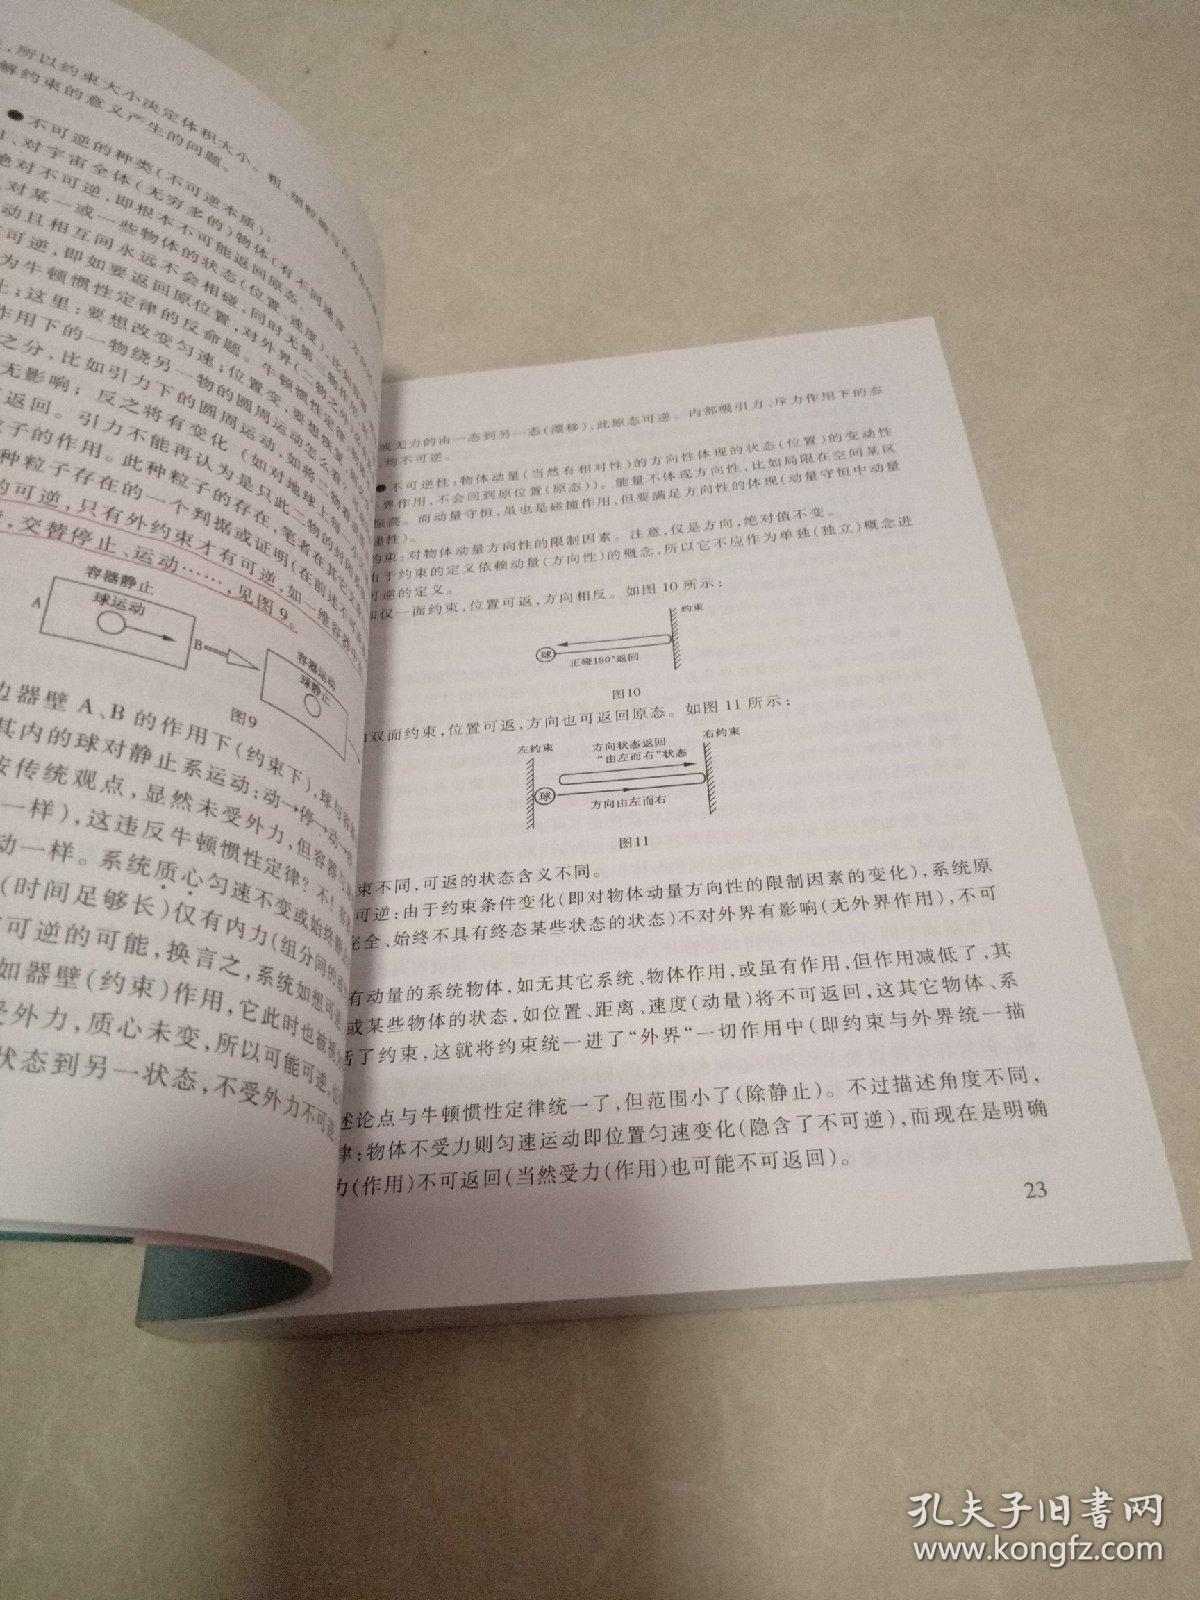 ，所以约束大小决定体积大小。粗、
解约束的意义产生的问题。
●不可逆的种类(不可逆本质)：
、对宇宙全体(无穷多的)物体(有不同速度、方向
绝对不可逆，即根本不可能返回原态。
对某一或一些物体的状态(位置、速度)，比如
动且相互间永远不会相碰，同时无第三物作用
可逆，即如要返回原位置，对外界(二物之外
为牛顿惯性定律的反命题。牛顿惯性定律
；这里：要想改变匀速；位置变，要想恢复
作用下的一物绕另一物的圆周运动怎么看
之分，比如引力下的圆周运动，如将二物看
无影响；反之将有变化(如对地球上每一
返回。引力不能再认为是只此二物的
粒子的作用。此种粒子的存在，笔者在其它文
种粒子存在的一个判据或证明(在前述不可
的可逆，只有外约束才有可逆，如一维容器
，交替停止、运动……，见图9。
容器静止
球运动
A
B
容器运动
球静止
图9
边器壁A、B的作用下(约束下)，球与容器
其内的球对静止系运动：动→停→动→
按传统观点，显然未受外力，但容器与
一样)，这违反牛顿惯性定律？不！
动一样。系统质心匀速不变或始终
(时间足够长)仅有内力(组分间的
可逆的可能，换言之，系统如想可逆
如器壁(约束)作用，它此时也被视
受外力，质心未变，所以可能可逆，
状态到另一状态，不受外力不可逆
或无力的由一态到另一态(漂移)，此原态可逆。内部吸引力、斥力作用下的态
均不可逆。
●不可逆性：物体动量(当然有相对性)的方向性体现的状态(位置)的变动性
界作用，不会回到原位置(原态))。能量不体现方向性，比如局限在空间某区
振荡。而动量守恒，虽也是碰撞作用，但要满足方向性的体现(动量守恒中动量
律性)。
约束：对物体动量方向性的限制因素。注意，仅是方向，绝对值不变。
由于约束的定义依赖动量(方向性)的概念，所以它不应作为单独(独立)概念进
可逆的定义。
如仅一面约束，位置可返，方向相反。如图10所示：
约束
球
正碰180°返回
图10
双面约束，位置可返，方向也可返回原态。如图11所示：
左约束
方向状态返回
“由左而右”状态
右约束
球
方向由左而右
图11
束不同，可返的状态含义不同。
可逆：由于约束条件变化(即对物体动量方向性的限制因素的变化)，系统原
完全、始终不具有终态某些状态的状态)不对外界有影响(无外界作用)，不可
有动量的系统物体，如无其它系统、物体作用，或虽有作用，但作用减低了，其
或某些物体的状态，如位置、距离、速度(动量)将不可返回，这其它物体、系
括了约束，这就将约束统一进了“外界“一切作用中(即约束与外界统一描
述论点与牛顿惯性定律统一了，但范围小了(除静止)。不过描述角度不同，
律：物体不受力则匀速运动即位置匀速变化(隐含了不可逆)，而现在是明确
力(作用)不可返回(当然受力(作用)也可能不可返回)。
23
孔夫子旧书网
www.kongfz.com